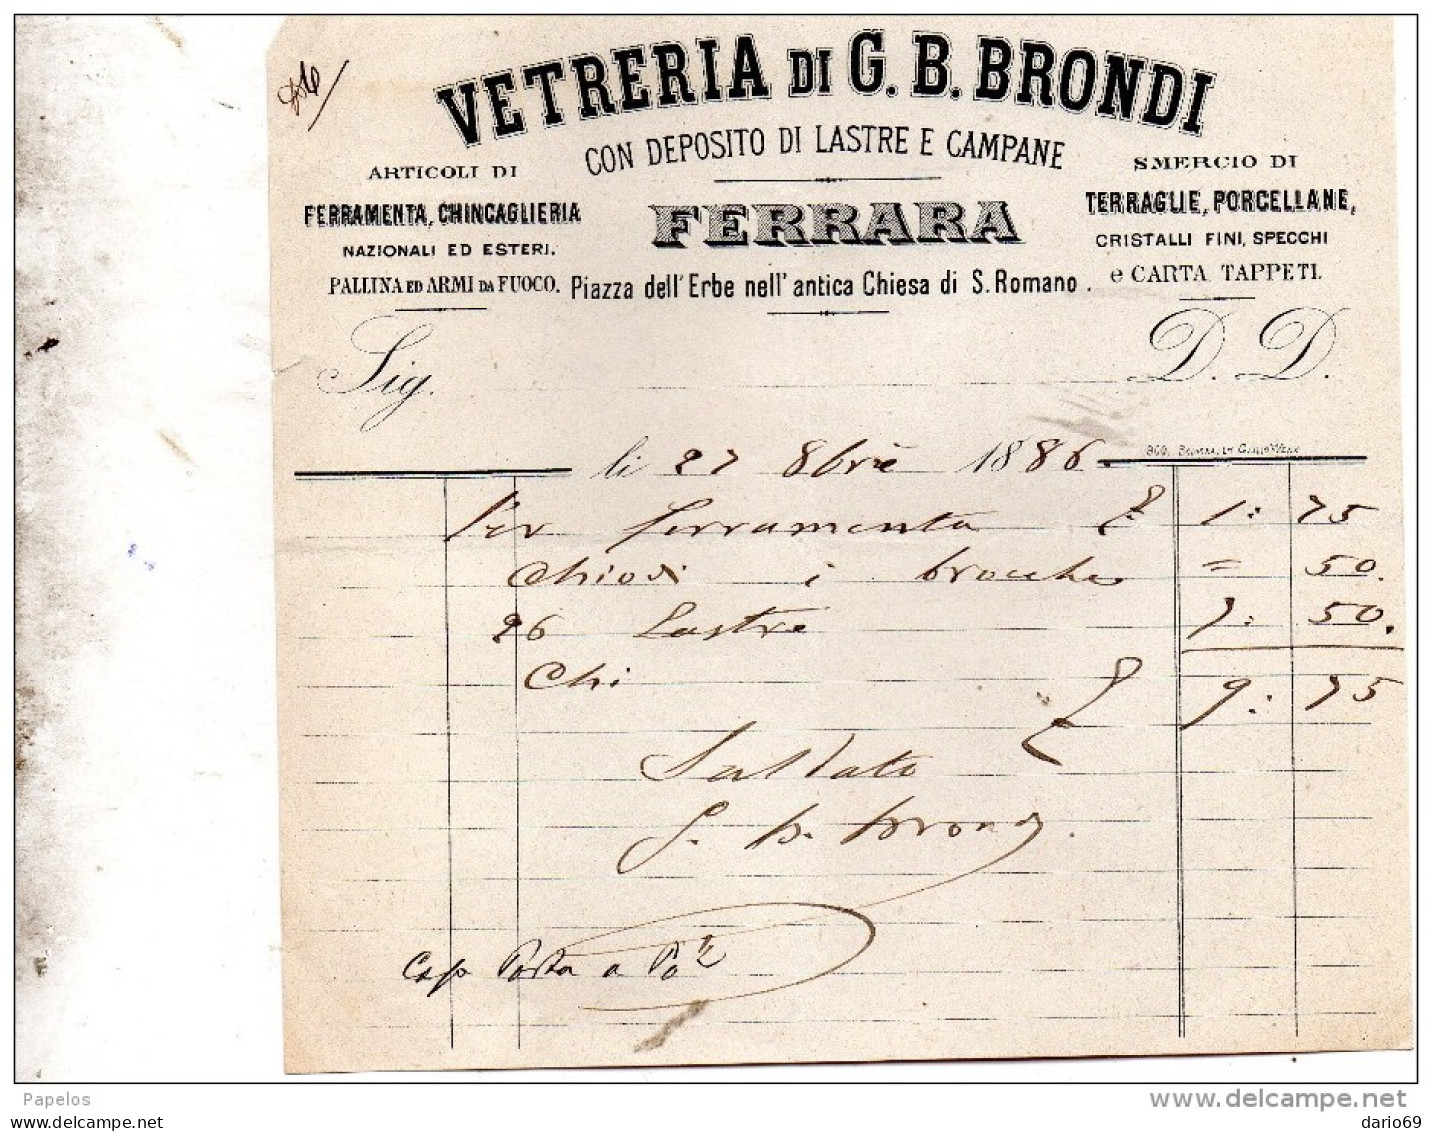 VETRERIA DI G. B. BRONDI
CON DEPOSITO DI LASTRE E CAMPANE
FERRARA
Piazza dell'Erbe nell'antica Chiesa di S. Romano.
ARTICOLI DI
FERRAMENTA, CHINCAGLIERIA
NAZIONALI ED ESTERI.
PALLINA ED ARMI DA FUOCO.
SMERCIO DI
TERRAGLIE, PORCELLANE,
CRISTALLI FINI, SPECCHI
e CARTA TAPPETI.
Sig. D. D.
li 27 8bre 1886.
Per ferramenta £ 1: 75
Chiodi i brocche = 50.
26 Lastre 7: 50.
Chi £ 9: 75
Saldato
G. B. Brondi.
Porta a Po
Papelos
www.delcampe.net
www.delcampe.net
dario69